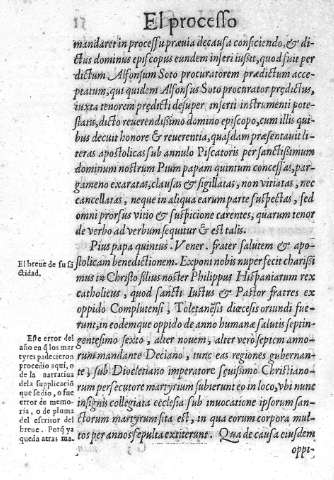 El processo
mandaret in processu prævia de causa conficiendo, & di-
ctus dominus episcopus eundem inseri iussit, quod fuit per
dictum Alfonsum Soto procuratorem prædictum acce-
ptatum, qui quidem Alfonsus Soto procurator prędictus,
iuxta tenorem prędicti desuper inserti instrumenti pote-
statis, dicto reverendissimo domino episcopo, cum illis qui-
bus decuit honore & reverentia, quasdam præsentavit li-
teras apostolicas sub annulo Piscatoris per sanctissimum
dominum nostrum Pium papam quintum concessas, par-
gameno exaratas, clausas & sigillatas, non vitiatas, nec
cancellatas, neque in aliqua earum parte suspectas, sed
omni prorsus vitio & suspicione carentes, quarum tenor
de verbo ad verbum sequitur & est talis.
Pius papa quintus. Vener. frater salutem & apo-
stolicam benedictionem. Exponi nobis nuper fecit charissi
mus in Christo filius noster Philippus Hispaniarum rex
catholicus, quod sancti Iustus & Pastor fratres ex
oppido Complutensi, Toletanęsis diœcesis oriundi fue-
runt, in eodemque oppido de anno humanæ salutis septin-
gentesimo sexto, alter novem, alter verò septem anno-
rum mandante Deciano, tunc eas regiones gubernan-
te, sub Diocletiano imperatore sęvissimo Christiano-
rum persecutore martyrium subierunt eo in loco, vbi nunc
insignis collegiata ecclesia sub invocatione ipsorum san-
ctorum martyrum sita est, in qua eorum corpora mul-
tos per annos sepulta exiterunt. Qua de causa eiusdem
oppi-
El breve de su sã
ctidad.
Este error del
año en q̃ los mar
tyres padecieron
procedio aqui, o
de la narratiua
dela supplicaciõ
que se dio, o fue
error de memo-
ria, o de pluma
del escritor del
breve. Perõ ya
queda atras ma.